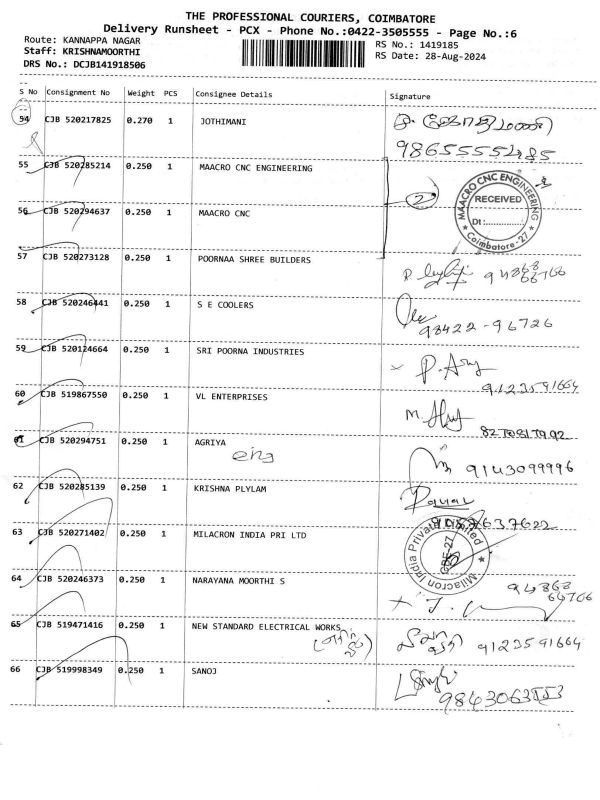 THE PROFESSIONAL COURIERS, COIMBATORE
Delivery Runsheet - PCX - Phone No.:0422-3505555 - Page No.:6
Route: KANNAPPA NAGAR RS No.: 1419185
Staff: KRISHNAMOORTHI RS Date: 28-Aug-2024
DRS No.: DCJB141918506
S No Consignment No Weight PCS Consignee Details Signature
54 CJB 520217825 0.270 1 JOTHIMANI
55 CJB 520285214 0.250 1 MAACRO CNC ENGINEERING
MAACRO CNC ENGINEERING
RECEIVED
Dt:
Coimbatore-27
2
56 CJB 520294637 0.250 1 MAACRO CNC
57 CJB 520273128 0.250 1 POORNAA SHREE BUILDERS
58 CJB 520246441 0.250 1 S E COOLERS
98422-96726
59 CJB 520124664 0.250 1 SRI POORNA INDUSTRIES
9123591664
60 CJB 519867550 0.250 1 VL ENTERPRISES
61 CJB 520294751 0.250 1 AGRIYA
eng 9143099996
62 CJB 520285139 0.250 1 KRISHNA PLYLAM
63 CJB 520271402 0.250 1 MILACRON INDIA PRI LTD
Milacron India Private Limited
64 CJB 520246373 0.250 1 NARAYANA MOORTHI S
65 CJB 519471416 0.250 1 NEW STANDARD ELECTRICAL WORKS
9123591664
66 CJB 519998349 0.250 1 SANOJ